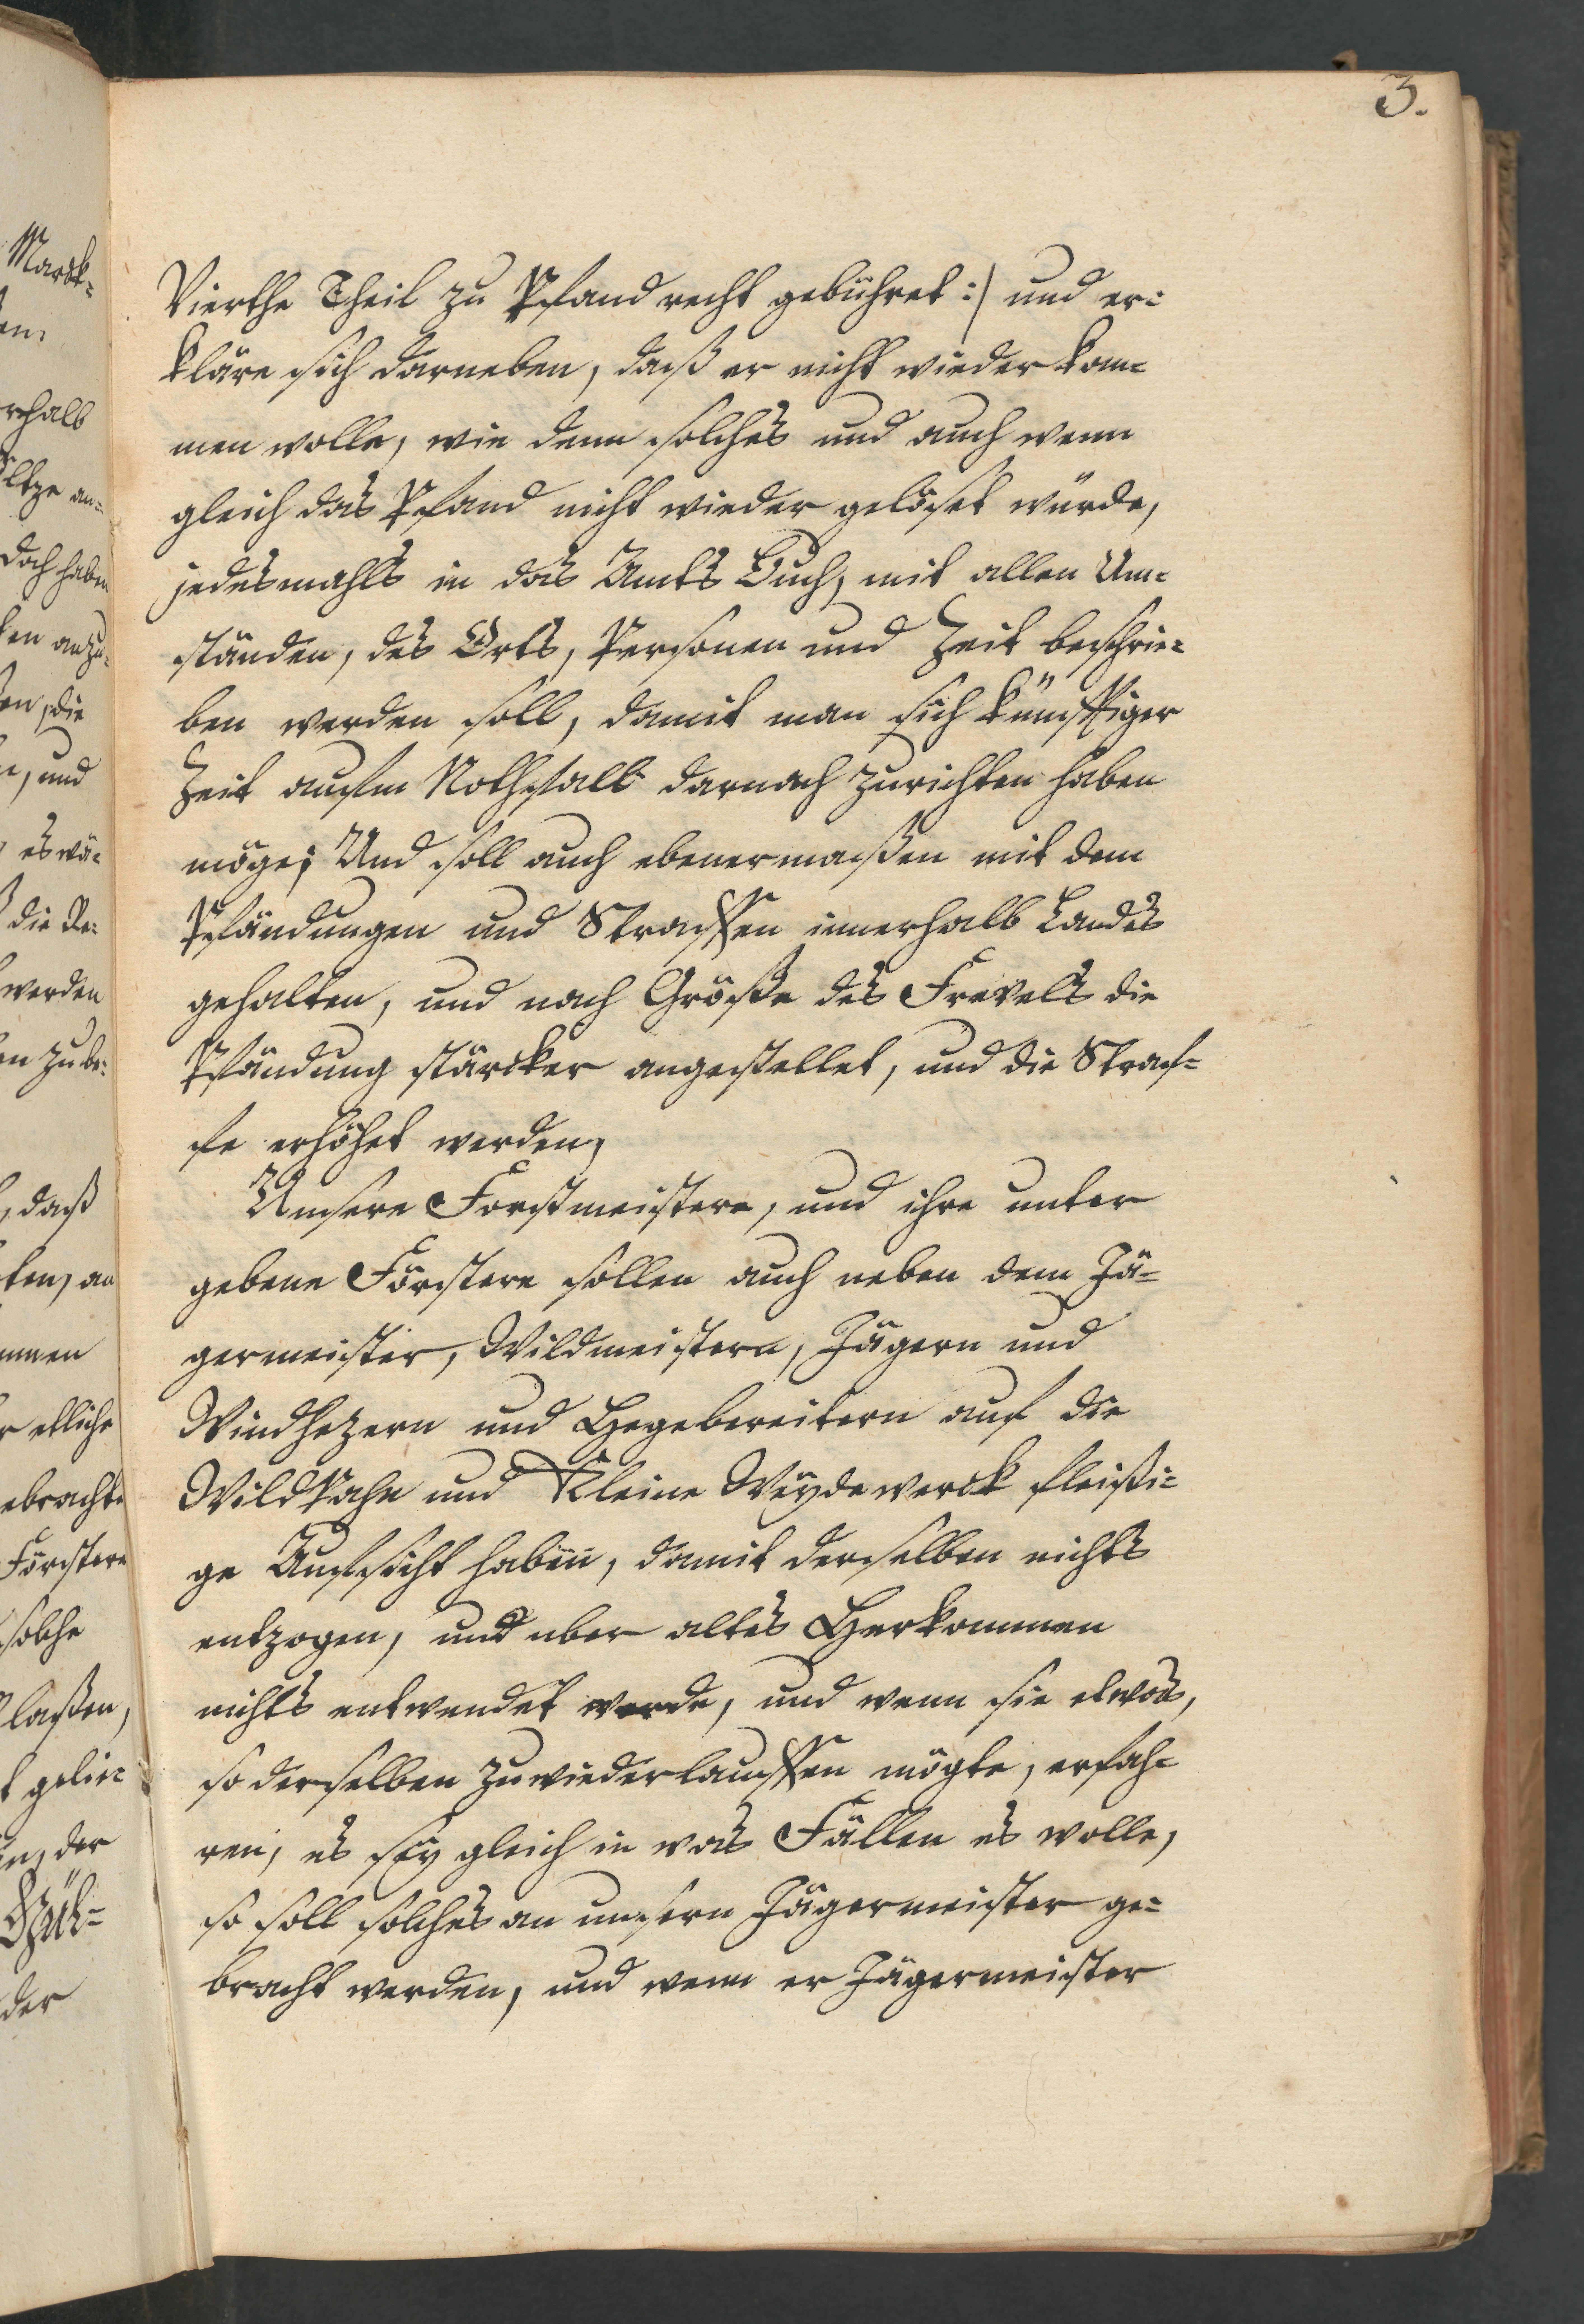 3.
Vierthe Theil zu Pfand recht gebühret :/ und er-
kläre sich darneben, daß er nicht wieder kom-
men wolle, wie denn solches und auch wenn
gleich das Pfand nicht wieder gelöset würde,
jedesmahls in das Amts Buch, mit allen Um-
ständen, des Orts, Personen und Zeit beschrie-
ben werden soll, damit man sich künfftiger
Zeit aufm Nothfall darnach zurichten haben
möge; Und soll auch ebenermaßen mit dem
Pfändungen und Straffen innerhalb Landes
gehalten, und nach Größe des Frevels die
Pfändung stärcker angestellet, und die Straf-
fe erhöhet werden,
Unsere Forstmeistere, und ihre unter
gebene Förstere sollen auch neben dem Jä-
germeister, Wildmeistern, Jägern und
Windhezern und Hegebereitern auf die
Wildbahn und Kleine Weydewerck fleißi-
ge Aufsicht haben, damit derselben nichts
entzogen, und uber altes Herkommen
nichts entwendet werde, und wenn sie etwas,
so derselben zuwiederlauffen mögte, erfah-
ren, es sey gleich in was Fällen es wolle,
so soll solches an unsern Jägermeister ge-
bracht werden, und wenn er Jägermeister
Marck-
rhalb
doch haben
anzu-
die
und
es wä-
die Re-
werden
zu be-
daß
etliche
ebracht
Förstere
solche
laßen,
der
der